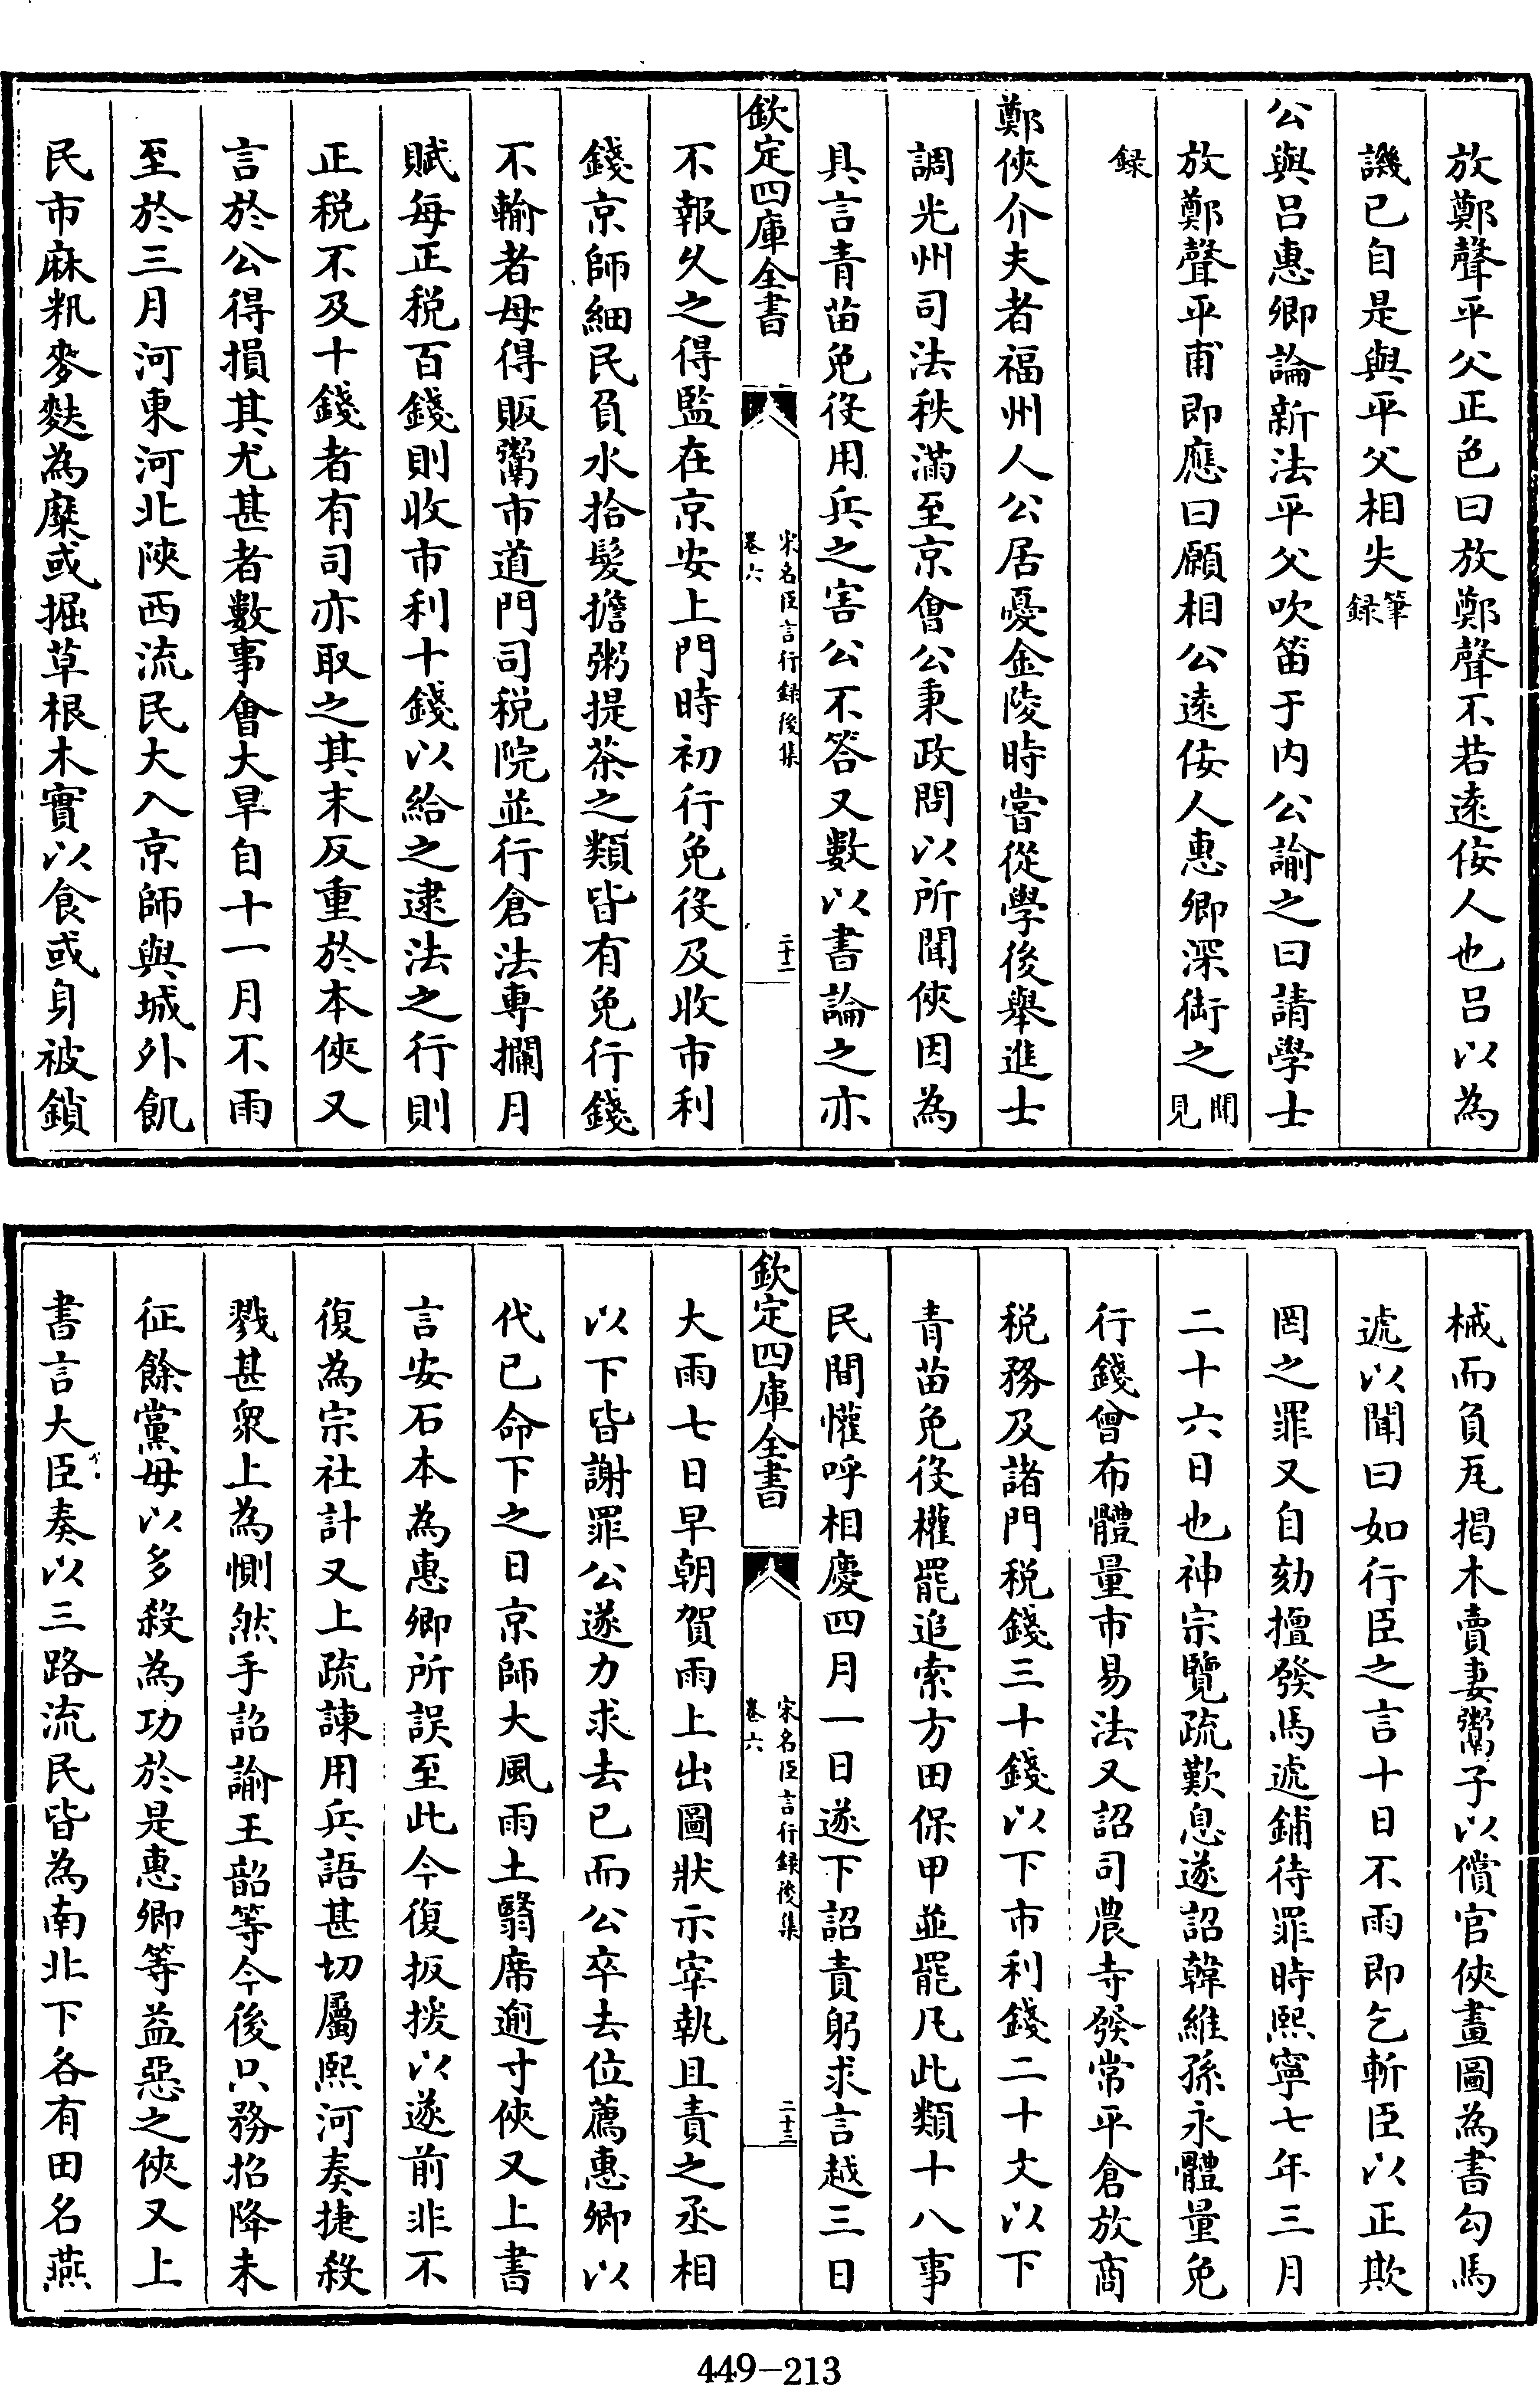 放鄭聲平父正色曰放鄭聲不若遠佞人也吕以為
譏已自是與平父相失筆録
公與吕惠卿論新法平父吹笛于内公諭之曰請學士
放鄭聲平甫即應曰願相公遠佞人惠卿深銜之聞見
録
鄭俠介夫者福州人公居憂金陵時嘗從學後舉進士
調光州司法秩滿至京會公秉政問以所聞俠因為
具言青苗免役用兵之害公不答又數以書論之亦
欽定四庫全書
宋名臣言行録後集
卷六
二十二
不報久之得監在京安上門時初行免役及收市利
錢京師細民負水拾髮擔粥提茶之類皆有免行錢
不輸者毋得販鬻市道門司税院並行倉法專攔月
賦每正税百錢則收市利十錢以給之逮法之行則
正税不及十錢者有司亦取之其末反重於本俠又
言於公得損其尤甚者數事會大旱自十一月不雨
至於三月河東河北陜西流民大入京師與城外飢
民市麻籸麥麩為糜或掘草根木實以食或身被鎖
械而負瓦揭木賣妻鬻子以償官俠畫圖為書勾馬
遞以聞曰如行臣之言十日不雨即乞斬臣以正欺
罔之罪又自劾擅發馬遞鋪待罪時熙寧七年三月
二十六日也神宗覽疏歎息遂詔韓維孫永體量免
行錢曾布體量市易法又詔司農寺發常平倉放商
税務及諸門税錢三十錢以下市利錢二十文以下
青苗免役權罷追索方田保甲並罷凡此類十八事
民間懽呼相慶四月一日遂下詔責躬求言越三日
欽定四庫全書
宋名臣言行録後集
卷六
二十三
大雨七日早朝賀雨上出圖狀示宰執且責之丞相
以下皆謝罪公遂力求去已而公卒去位薦惠卿以
代已命下之日京師大風雨土翳席逾寸俠又上書
言安石本為惠卿所誤至此今復扳援以遂前非不
復為宗社計又上疏諫用兵語甚切屬熙河奏捷殺
戮甚衆上為惻然手詔諭王韶等今後只務招降未
征餘黨毋以多殺為功於是惠卿等益惡之俠又上
書言大臣奏以三路流民皆為南北下各有田名燕
449-213